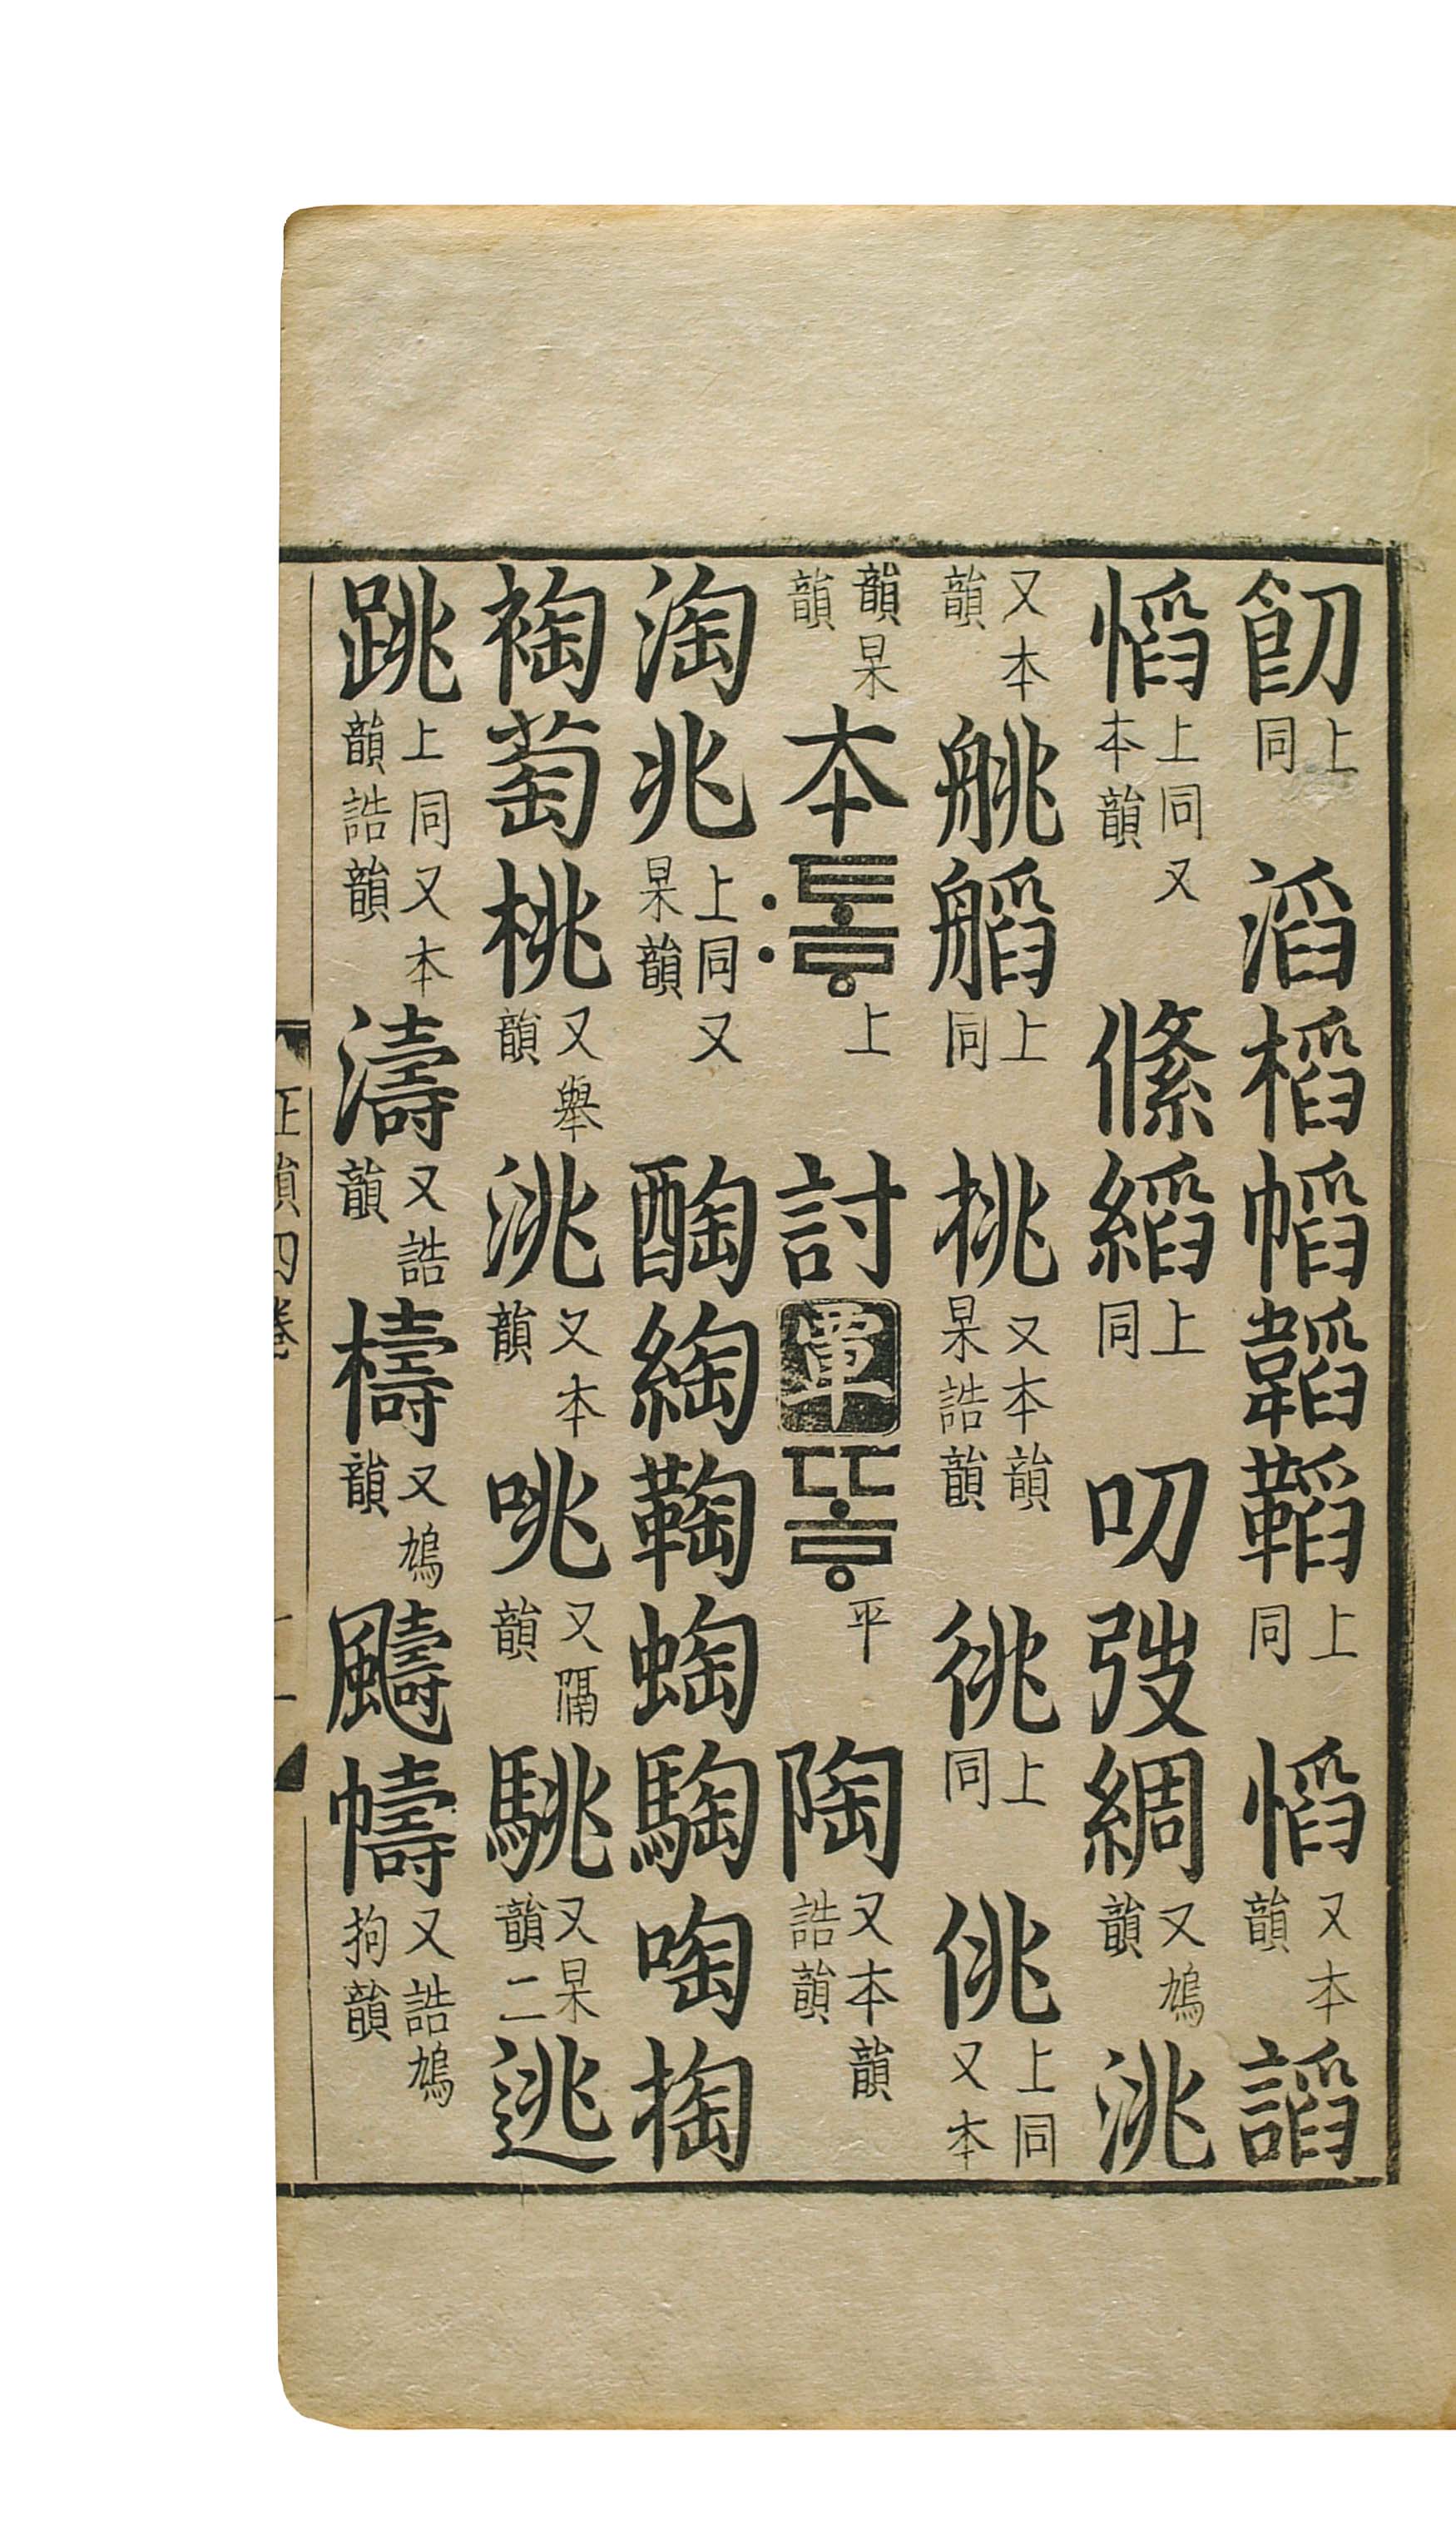 上同滔槄幍韜鞱上同慆又本韻謟
慆上同又本韻絛縚上同叨弢綢又鳩韻洮
又本韻艞䑬上同挑又本韻杲誥韻上同佻上同又本
韻杲韻本〯토ᇢ上討覃또ᇢ平陶又本韻誥韻
淘兆上同又杲韻醄綯蜪騊啕掏
裪萄桃又舉韻洮又本韻咷又隔韻駣又杲韻二逃
跳上同又本韻誥韻濤又誥韻檮又鳩韻䬞幬又誥鳩拘韻
正韻四卷